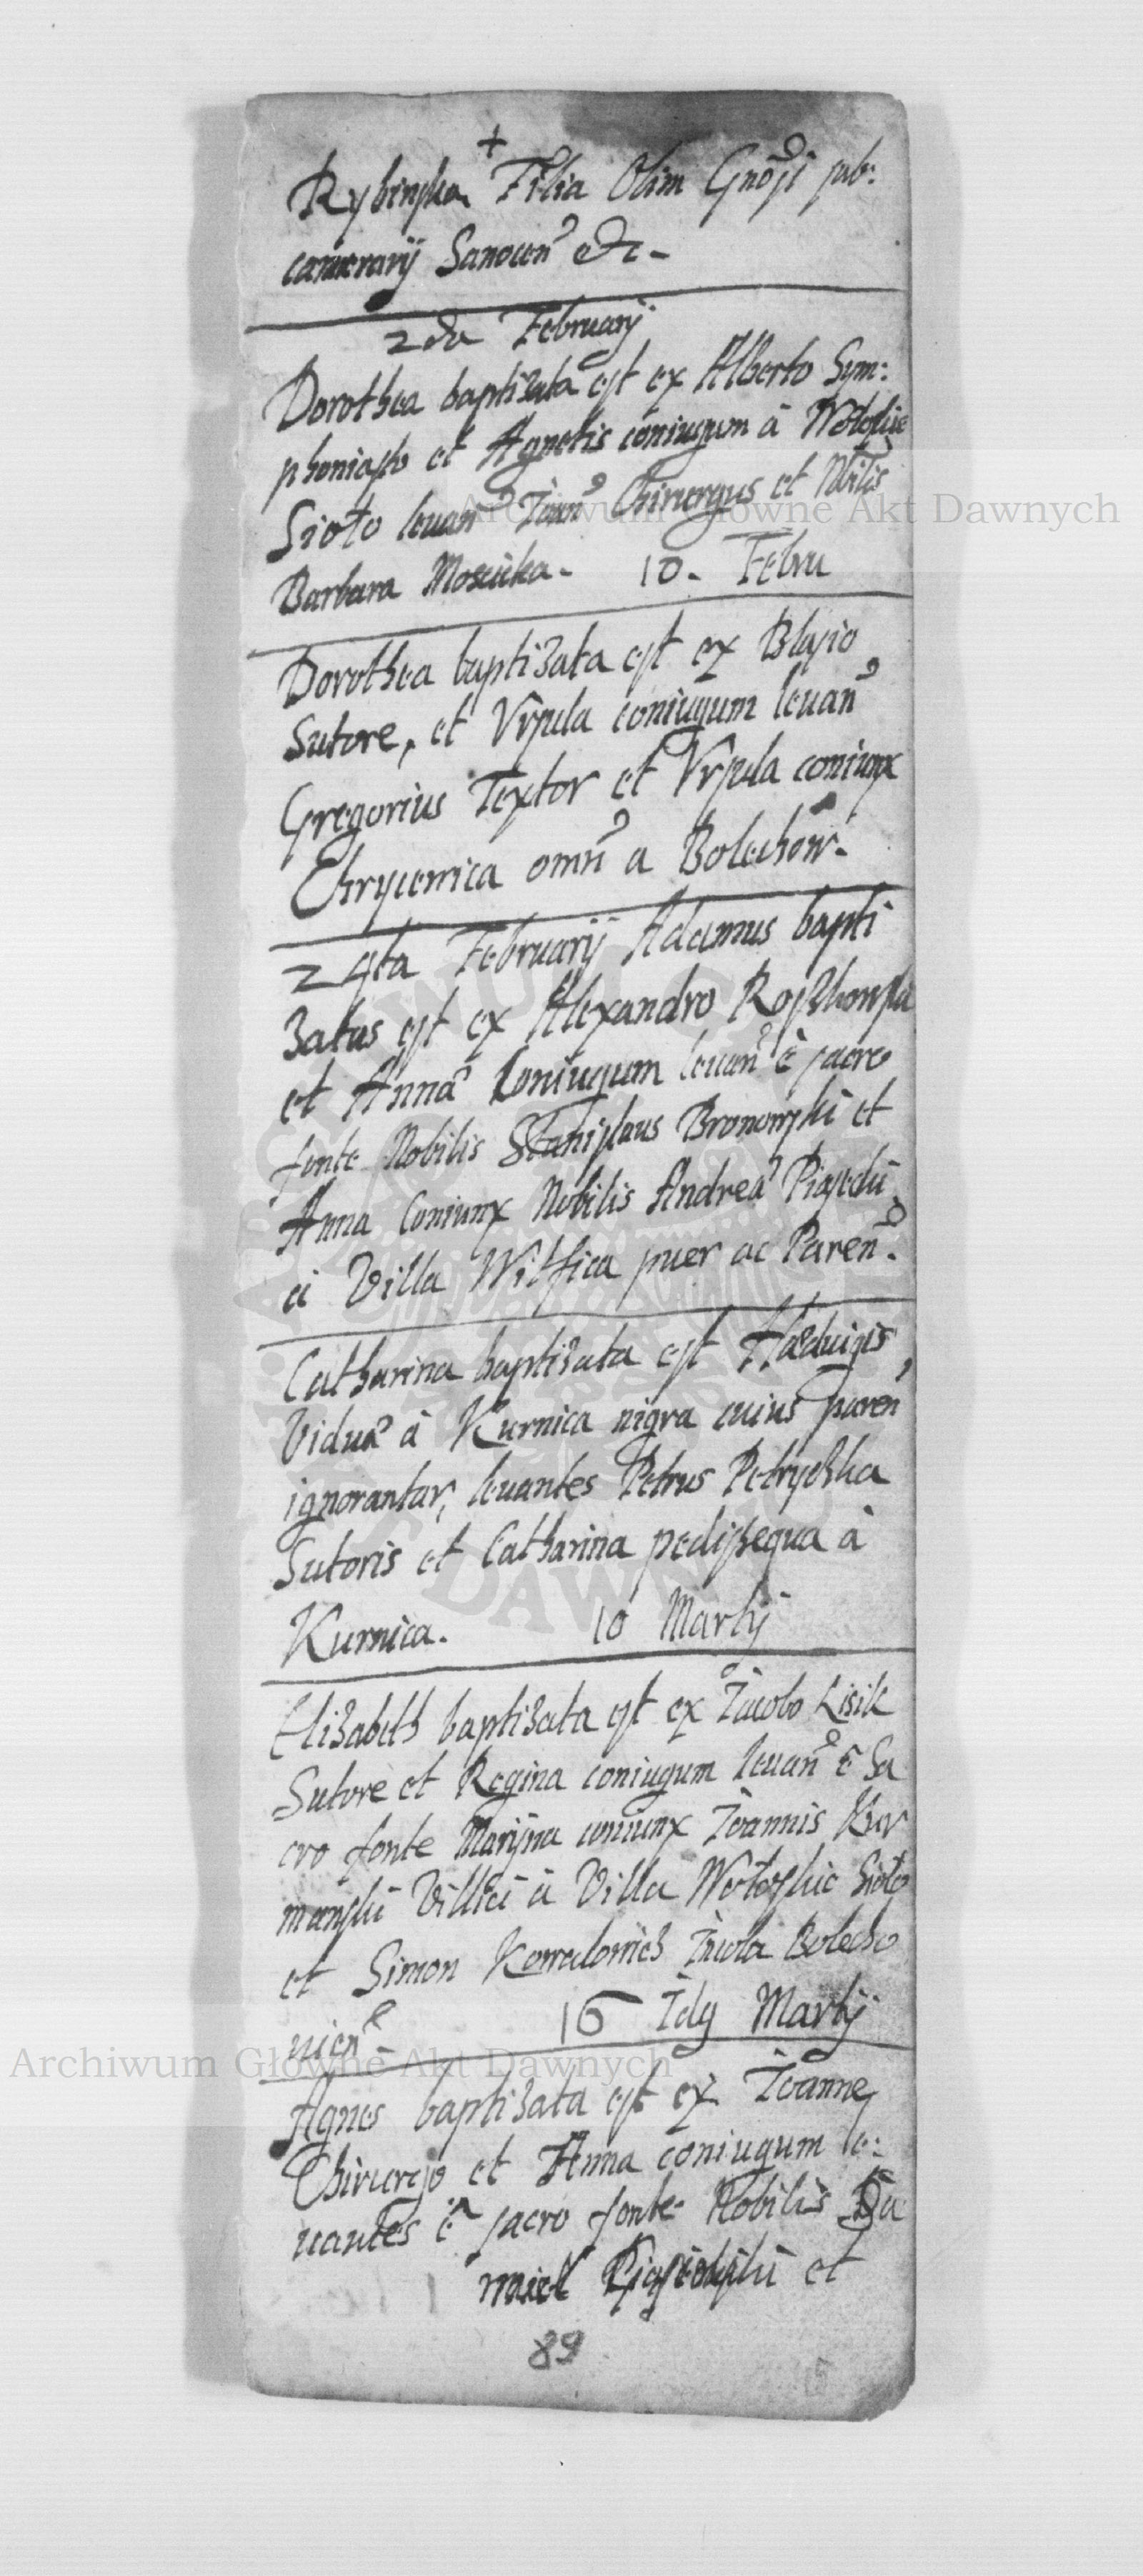 Rybinska + Filia Olim Gnosi sub:
camerarij Sanocen etc-
2da Februarij
Dorothea baptisata est ex Alberto Sym:
phoniasto et Agnetis coniugum à Wołoskie
Sioło levan Ioan Chirurgus et Nbilis
Barbara Moscicka. 10. Febru
Dorothea baptizata est ex Blasio
Sutore, et Vrsula coniugum levan
Gregorius Textor et Vrsula coniunx
Chrycenica omn a Bolechow.
24ta Februarij Adamus bapti
zatus est ex Alexandro
et Anna Coniugum levan è sacro
fonte Nobilis Stanislaus Bronowski et
Anna Coniunx Nobilis Andrea
à Villa Witfica puer ac Paren.
Catharina baptizata est Haeduigis
Vidua à Kurnica nigra cuius paren
ignorantur, levantes Petrus Petryczka
Sutoris et Catharina pedissequa à
Kurnica. 10 Martij
Elizabeth baptizata est ex Iacobo Lisik
Sutore et Regina coniugum levan è Sa
cro fonte Maryna coniunx Ioannis Kur
manski Villici à Villa Wołoskie Sioło
et Simon Incola Bolecho
vien- 16 Idy Martij
Agnes baptizata est ex Ioanne
Chirurgo et Anna coniugum le:
vantes è sacro fonte Nobilis Da
niel et
89
Archiwum Główne Akt Dawnych
Archiwum Główne Akt Dawnych